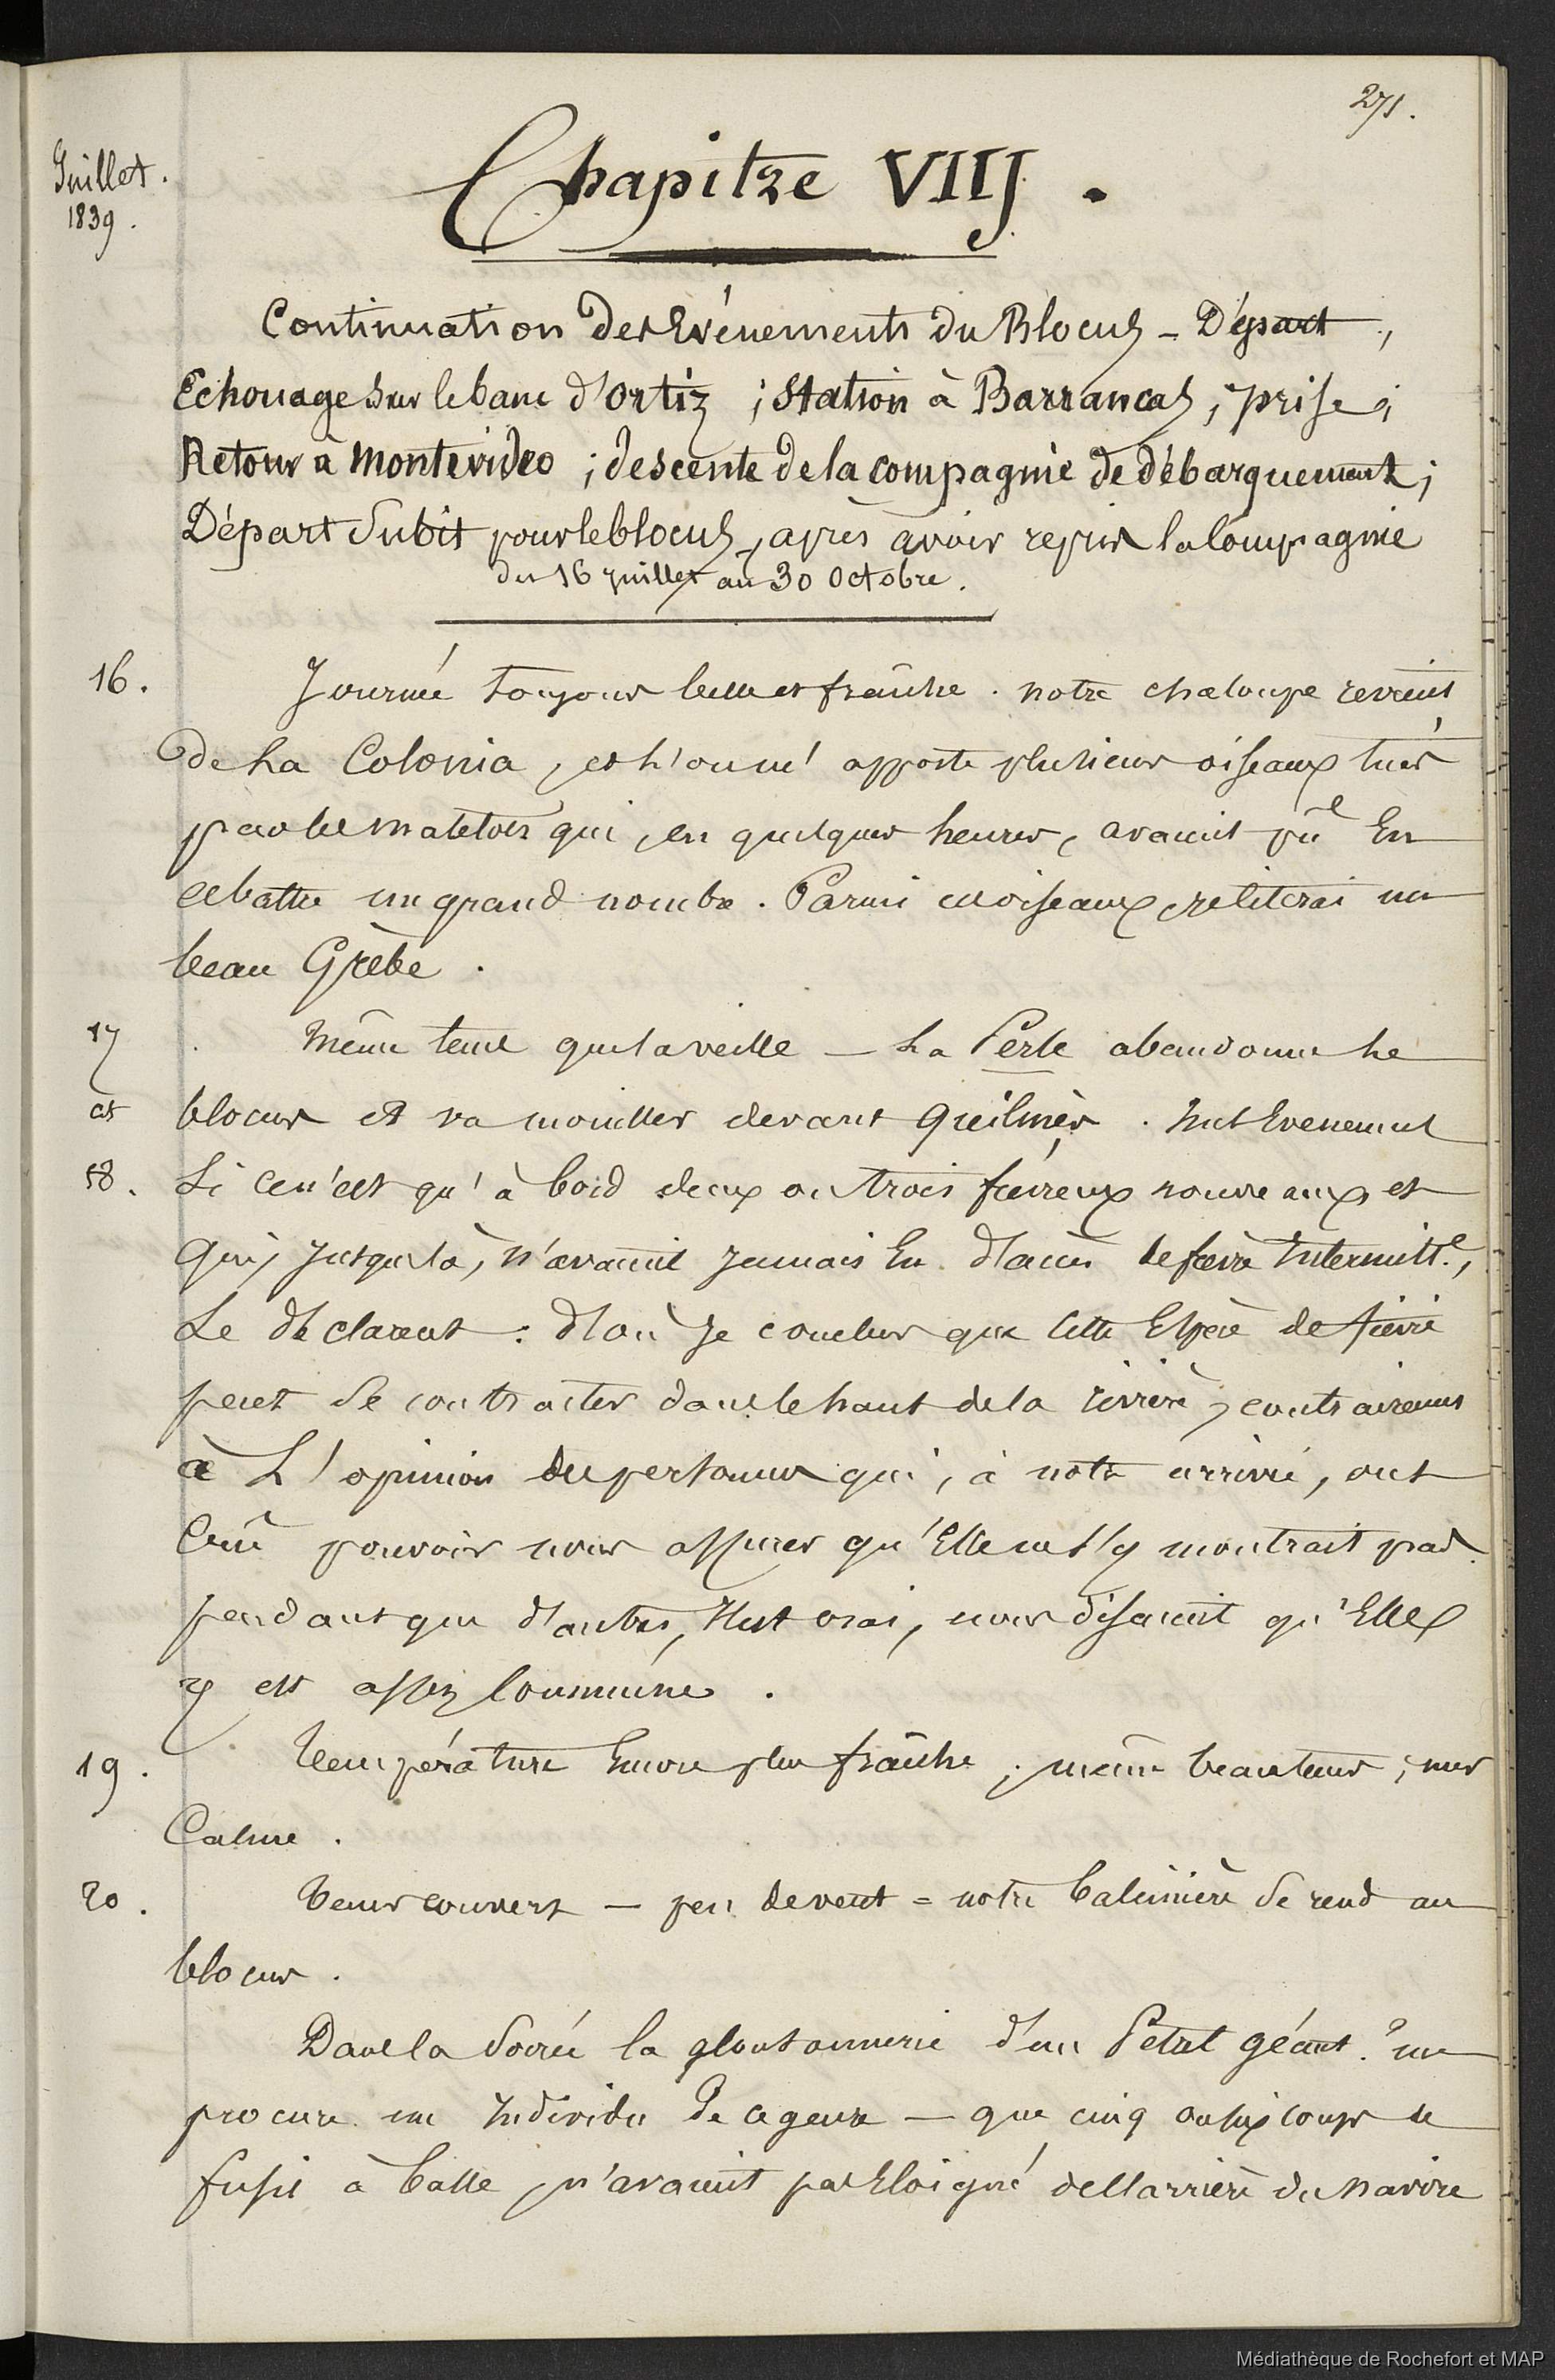 271.
Juillet.
1839.
Chapitre VIIJ.
Continuation des Evénements du Blocus - Départ ;
Echouage sur le banc d'Ortiz ; Station à Barrancas ; prise ;
Retour à Montevideo ; descente de la compagnie de débarquement ;
Départ Subit pour le blocus, après avoir repris la Compagnie
du 16 juillet au 30 Octobre.
16. Journée toujours belle et fraîche. notre chaloupe revient
de La Colonia, et m'apporte plusieurs oiseaux tués
par les matelots qui, en quelques heures, avaient pû en
abattre un grand nombre. Parmi ces oiseaux, je citerai un
beau Grèbe.
17 Même tems que la veille — La Perle abandonne le
et blocus et va mouiller devant Quilmès. Nul Evenement
18. Si ce n'est qu'à bord deux ou trois fiévreux nouveaux, et
qui, jusque là, n'avaient jamais Eu d'accès de fièvre Intermitte,
Se déclarent : d'où Je conclus que cette Espèce de fièvre
peut Se contracter dans le haut de la rivière, contrairement
à L'opinion des personnes qui, à notre arrivée, ont
Crû pouvoir nous assurer qu'Elle ne s'y montrait pas.
pendant que d'autres, Il est vrai, nous disaient qu'Elle
y est assez Commune.
19. Température Encore plus fraîche ; même beau tems ; mer
Calme.
20. Tems couvert — peu de vent = notre baleinière Se rend au
blocus.
Dans la Soirée la gloutonnerie d'un Petrel géant ? me
procure un Individu de ce genre — que cinq ou six coups de
fusil à balle, n'avaient pas Eloigné de l'arrière du navire
Médiathèque de Rochefort et MAP